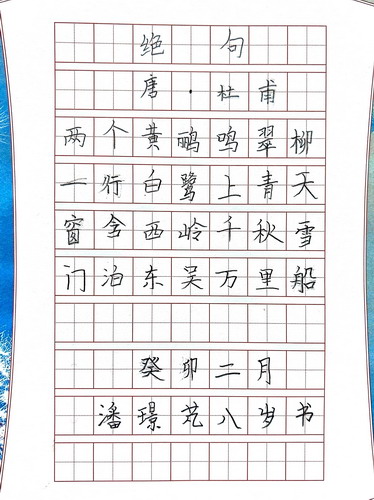 绝句
唐·杜甫
两个黄鹂鸣翠柳
一行白鹭上青天
窗含西岭千秋雪
门泊东吴万里船
癸卯二月
潘璟芃八岁书